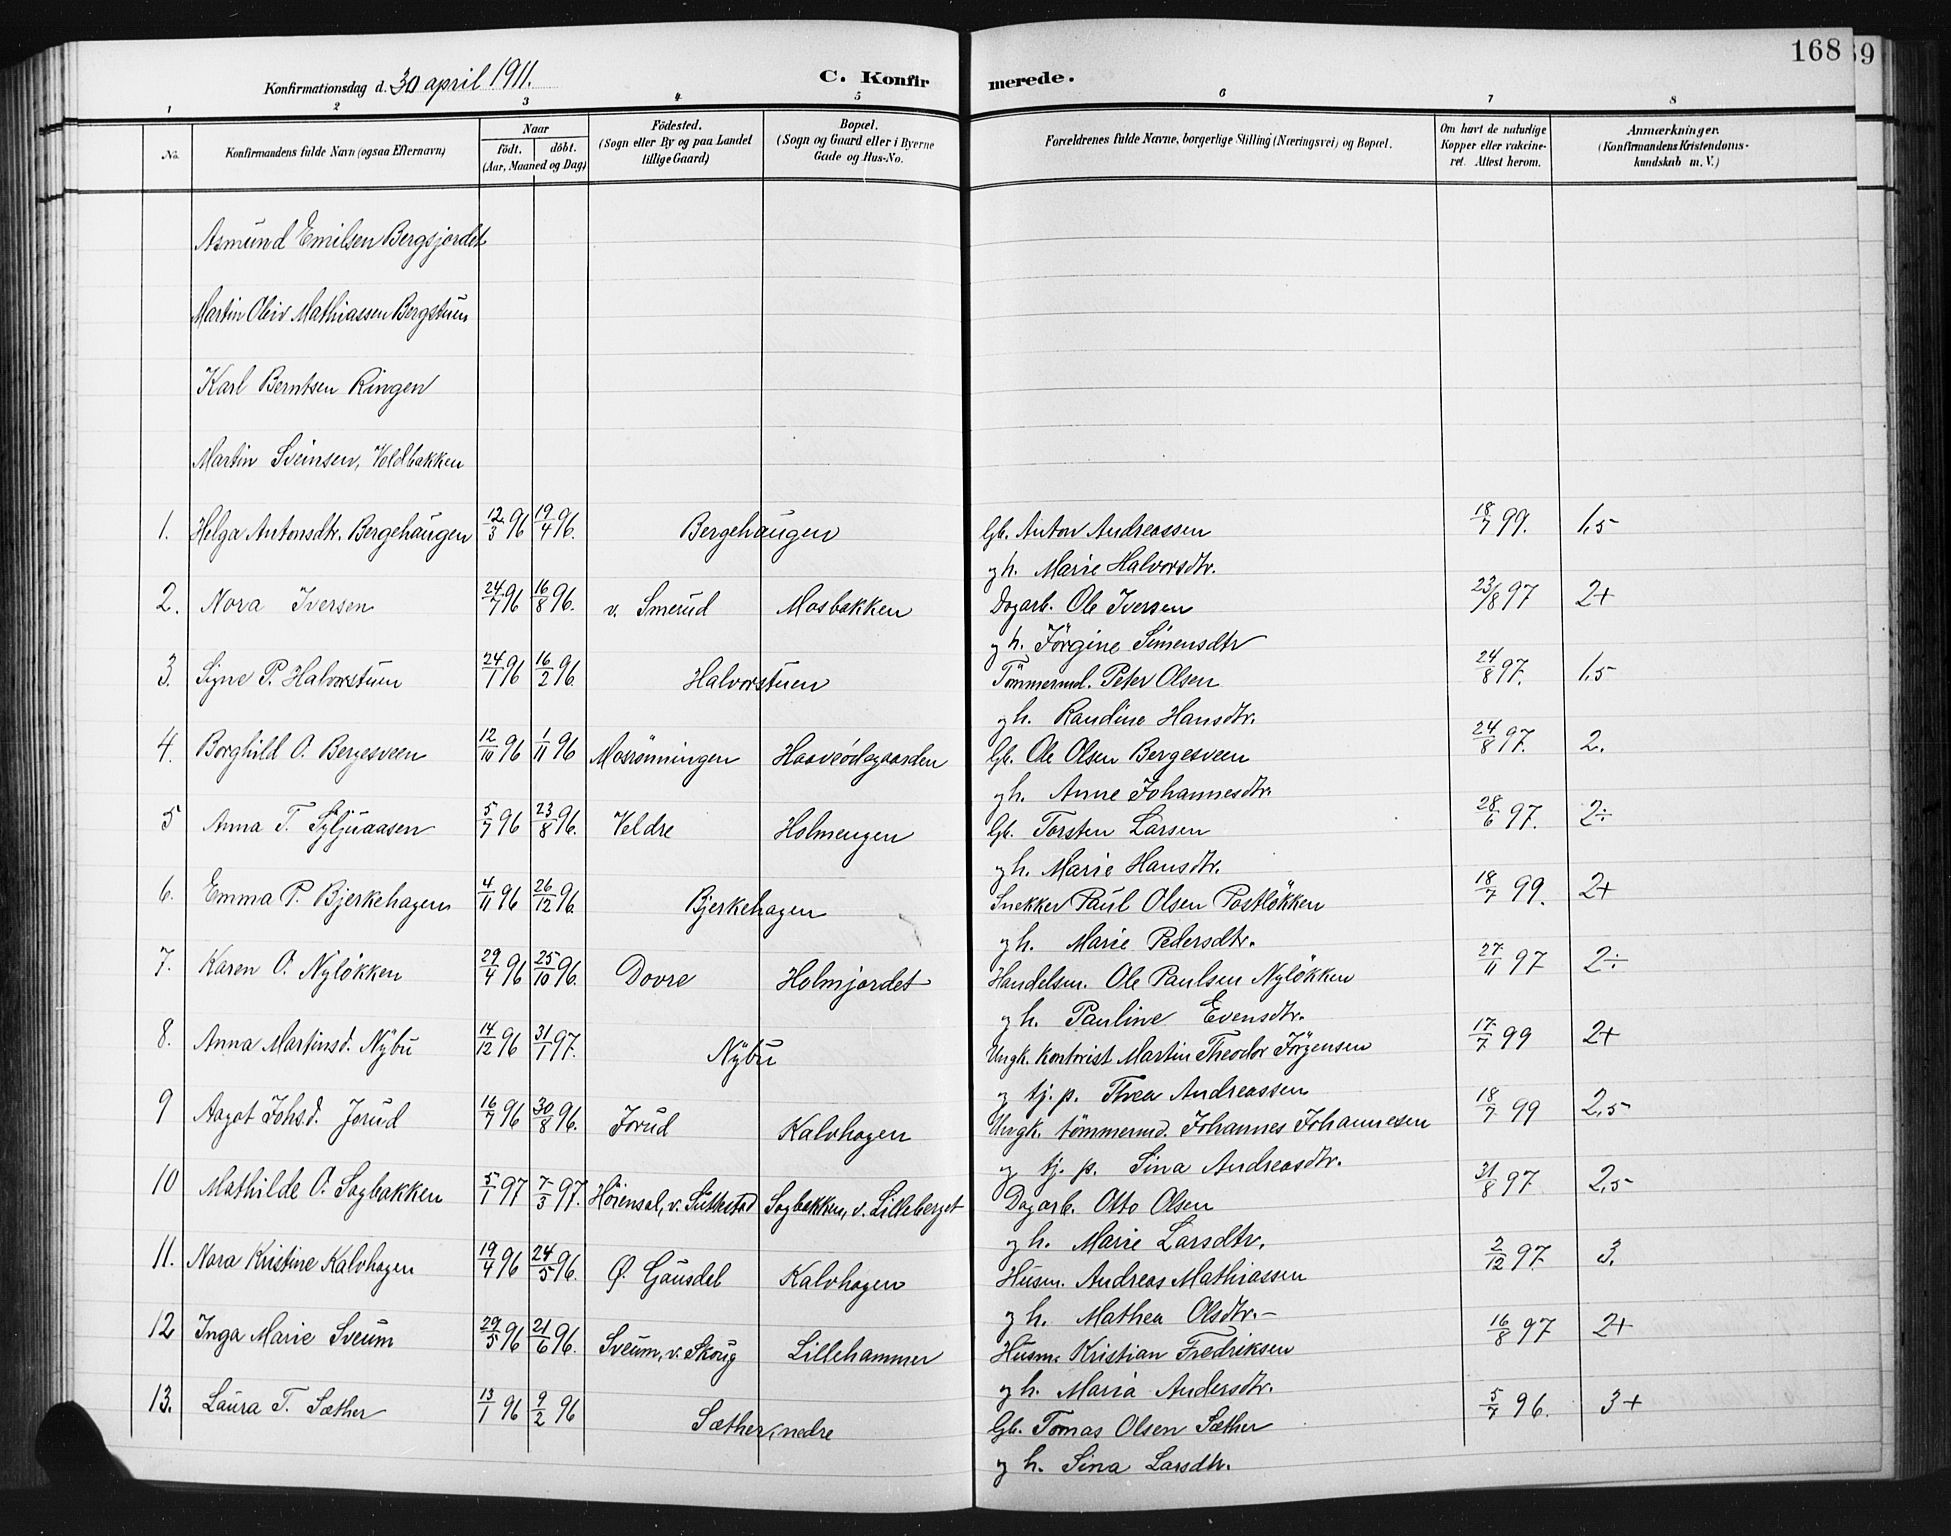 168
Konfirmationsdag d. 30 april 1911.
C. Konfirmerede.
1 2 3 4 5 6 7 8
No. Konfirmandens fulde Navn (ogsaa Efternavn) Naar födt. döbt. (Aar, Maaned og Dag) Födested. (Sogn eller By og paa Landet tillige Gaard) Bopæl. (Sogn og Gaard eller i Byerne Gade og Hus-No. Forældrenes fulde Navne, borgerlige Stilling (Næringsvei) og Bopæl. Om havt de naturlige Kopper eller vakcineret. Attest herom. Anmærkninger. (Konfirmandens Kristendomskundskab m. V.)
Asmund Emilsen Bergsjordet
Martin Oliv Mathiassen Bergstuen
Karl Berntsen Ringen
Martin Sveinsen, Voldbakken
1. Helga Antonsdtr. Bergehaugen 12/3 96 19/4 96. Bergehaugen Gb. Anton Andreassen 18/7 99. 1,5
og h. Marie Halvorsdtr.
2. Nora Iversen 24/7 96 16/8 96. v. Smerud Mosbakken Dagarb. Ole Iversen 23/8 97 2+
og h. Jörgine Simensdtr
3. Signe P. Halvorstuen 24/1 96 16/2 96. Halvorstuen Tömmermd. Peter Olsen 24/8 97. 1,5
og h. Randine Hansdtr.
4. Borghild O. Bergesveen 12/10 96 1/11 96 Mosrönningen Haaveödegaarden Gb. Ole Olsen Bergesveen 24/8 97. 2.
og h. Anne Johannesdtr.
5 Anna T. Syljuaasen 5/7 96 23/8 96. Veldre Holmengen Gb. Torsten Larsen 28/6 97. 2÷
og h. Marie Hansdtr.
6. Emma P. Bjerkehagen 4/11 96 26/12 96. Bjerkehagen Snekker Paul Olsen Postlökken 18/7 99. 2+
og h. Marie Pedersdtr.
7. Karen O. Nylökken 29/4 96 25/10 96. Dovre Holmjordet Handelsm. Ole Paulsen Nylökken 27/11 97 2÷
og h. Pauline Evensdtr.
8. Anna Martinsd. Nybu 14/12 96 31/1 97. Nybu Ungk. kontorist Martin Theodor Jörgensen 17/7 99 2+
og tj. p. Thea Andreassen
9 Aagot Johsd. Jorud 16/7 96 30/8 96. Jorud Kalvhagen Ungk. tömmermd. Johannes Johannesen 18/7 99 2,5
og tj. p. Sina Andreasdtr.
10 Mathilde O. Sagbakken 5/1 97 7/3 97. Höiensal, v. Suttestad Sagbakken, v. Lilleberget Dagarb. Otto Olsen 31/8 97 2,5
og h. Marie Larsdtr.
11. Nora Kristine Kalvhagen 19/4 96 24/5 96. Ø. Gausdal Kalvhagen Husm. Andreas Mathiassen 2/12 97. 3.
og h. Mathea Olsdtr.-
12 Inga Marie Sveum 29/5 96 21/6 96. Sveum, v. Skoug Lillehammer Husm. Kristian Fredriksen 16/8 97 2+
og h. Maria Andersdtr.
13. Laura T. Sæther 13/1 96 9/2 96 Sæther, nedre Gb. Tomas Olsen Sæther 5/7 96. 3+
og h. Sina Larsdtr.